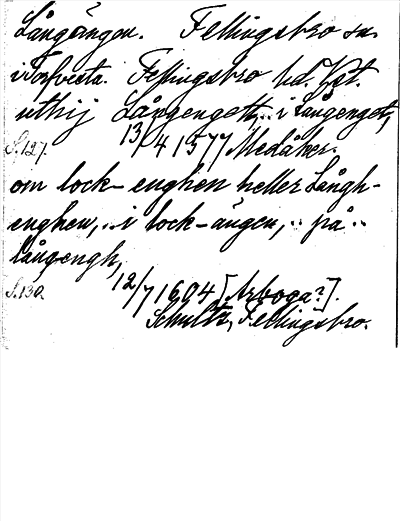 Långängen. Fellingsbro sn
i Torpvesta. Fellingsbro hd. Vst.
uthij Långengett, .. i Långenget,
S.127. 13/4 1577 Medåker.
om lock-enghen heller Långh-
enghen, .. i lock-ängen, .. på ..
långengh,
S.130 12/7 1604 [Arboga?].
Schultz, Fellingsbro.